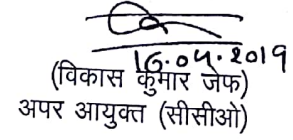 16.04.2019
(विकास कुमार जेफ)
अपर आयुक्त (सीसीओ)